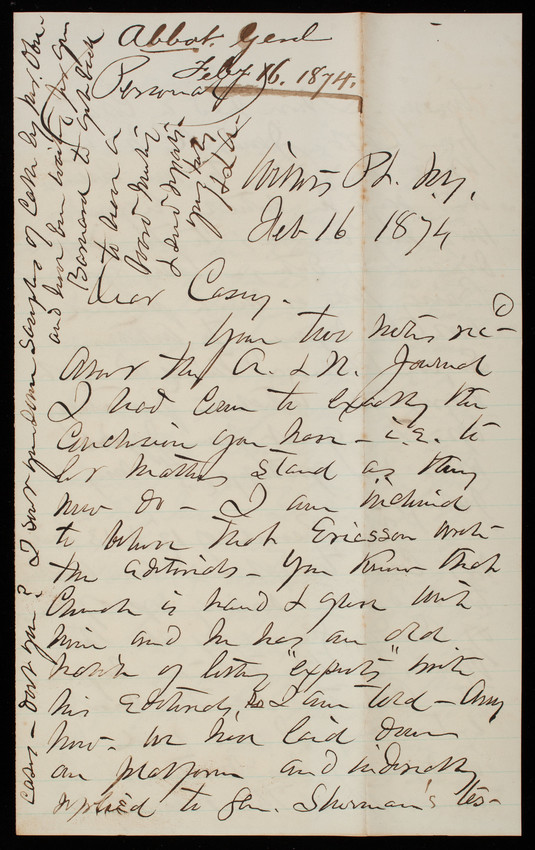 Abbot. Genl
Feby 16. 1874.
Personal
Willets Pt. N.Y.
Feb 16 1874
Dear Casey.
Your two notes rec'd
About the A. & N. Journal
I had come to exactly the
conclusion you have - i.e. to
let matters stand as they
now do - I am inclined
to believe that Ericsson wrote
the editorials - You know that
Church is hand & glove with
him and he has an old
habit of letting "experts" write
his editorials, so I am told - Any
how - we have laid down
our platform and indirectly
replied to Gen. Sherman's tes-
cases - don't you? I sent you some samples of Cable by Mr. Ober
and have been waiting for Gen
Barnard to get back
to have a
Board Meeting
& send
yrs truly
H L A